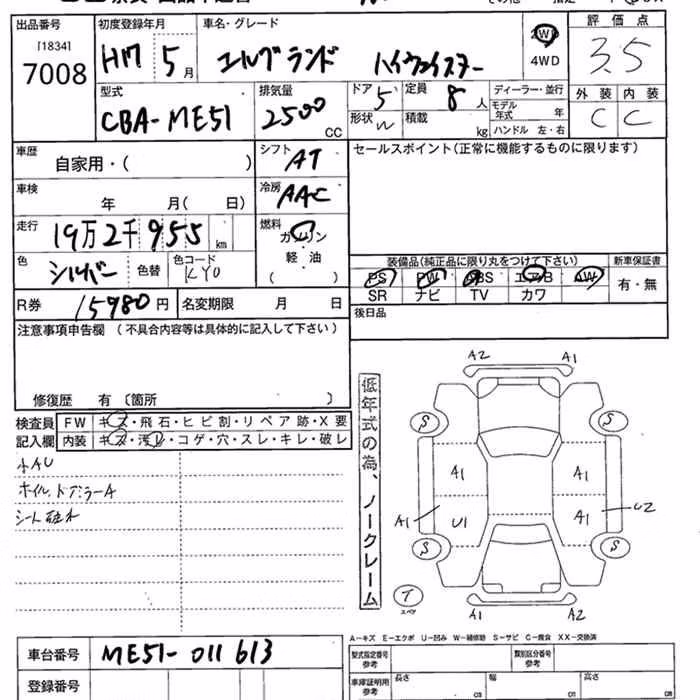 出品番号 初度登録年月 車名・グレード 評価点
[1834]
7008 H17 5月 エルグランド ハイウェイスター 2WD 4WD 3.5
型式 排気量 ドア 5 定員 8人 ディーラー・並行 外装 内装
CBA-ME51 2500cc 形状 W 積載 kg モデル年式 年 C C
ハンドル 左・右
車歴 自家用・( ) シフト AT セールスポイント(正常に機能するものに限ります)
車検 年 月( 日) 冷房 AAC
走行 19万2千955km 燃料 ガソリン
軽・油
( )
色 シルバー 色替 色コード KY0
装備品(純正品に限り丸をつけて下さい) 新車保証書
PS PW ABS エアB AW 有・無
SR ナビ TV カワ
R券 15980円 名変期限 月 日 後日品
注意事項申告欄 (不具合内容等は具体的に記入して下さい)
修復歴 有〔箇所 〕
検査員 FW キズ・飛石・ヒビ割・リペア跡・X要
記入欄 内装 キズ・汚レ・コゲ・穴・スレ・キレ・破レ
小AU
ホイル、ドアミラーA
低年式の為、ノークレーム
A2 A1
S S
A1 A1
A1 U1 A1 U2
S S
T
スペア
A1 A2
A-キズ E-エクボ U-凹み W-補修跡 S-サビ C-腐食 XX-交換済
車台番号 ME51-011613 型式指定番号 参考 類別区分番号 参考
登録番号 車庫証明用 参考 長さ cm 幅 cm 高さ cm